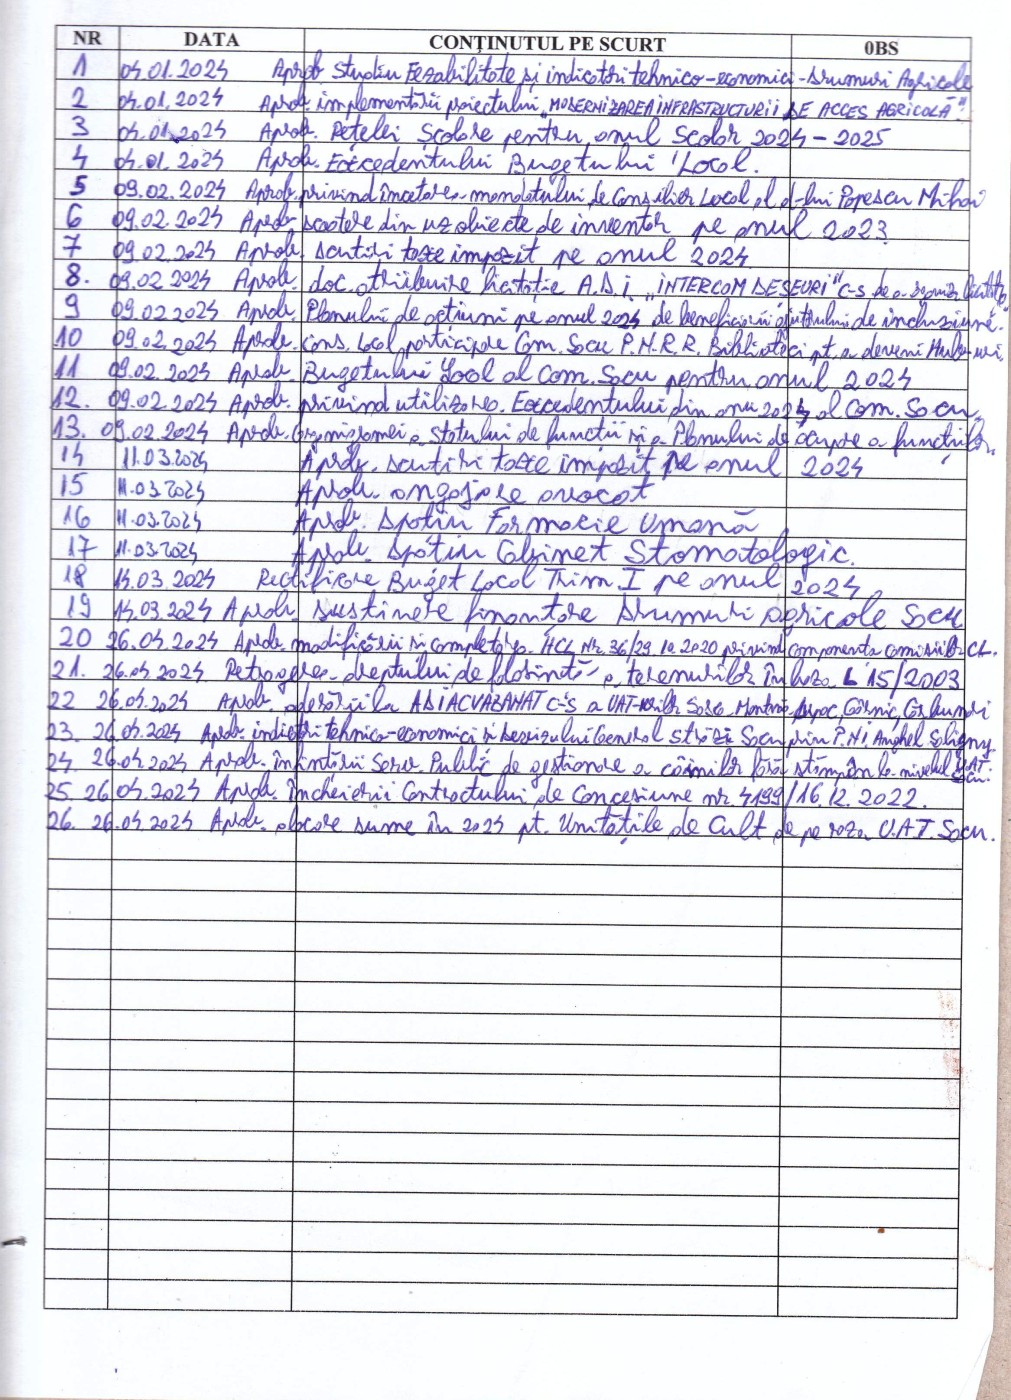 NR DATA CONȚINUTUL PE SCURT 0BS
1 04.01.2024 Aprob Studiu Fezabilitate și indicatri tehnico-economici - Drumuri Agricole
2 04.01.2024 Aprob. implementării proiectului „MODERNIZAREA INFRASTRUCTURII DE ACCES AGRICOLĂ".
3 04.01.2024 Aprob. Rețelei Școlare pentru anul Școlar 2024-2025
4 04.01.2024 Aprob. Excedentului Bugetului Local.
5 09.02.2024 Aprob. privind încetarea mandatului de Consilier Local al d-lui Popescu Mihai
6 09.02.2024 Aprob. scoatere din uz obiecte de inventar pe anul 2023
7 09.02.2024 Aprob. scutiri taxe impozit pe anul 2024
8. 09.02.2024 Aprob. doc. atribuire licitație A.D.I. „INTERCOM DEȘEURI" C-S de a organiza licitația
9 09.02.2024 Aprob. Planului de acțiuni pe anul 2024 de beneficiarii ajutorului de incluziune.
10 09.02.2024 Aprob. Cons. Local participare Com. Socu P.N.R.R. Biblioteci pt. a deveni Hub-uri.
11 09.02.2024 Aprob. Bugetului Local al Com. Socu pentru anul 2024
12. 09.02.2024 Aprob. privind utilizarea Excedentului din anu 2024 al Com. Socu.
13. 09.02.2024 Aprob. Organigramei a Statului de funcții și a Planului de ocupare a funcțiilor.
14 11.03.2024 Aprob. scutiri taxe impozit pe anul 2024
15 11.03.2024 Aprob. angajare avocat
16 11.03.2024 Aprob. Spațiu Farmacie Umană
17 11.03.2024 Aprob. Spațiu Cabinet Stomatologic.
18 14.03.2024 Rectificare Buget Local Trim. I pe anul 2024
19 14.03.2024 Aprob. susținere finanțare Drumuri agricole Socu
20 26.04.2024 Aprob. modificării și completarea HCL Nr. 36/29.10.2020 privind componenta comisiilor CL.
21. 26.04.2024 Retragerea dreptului de folosință a terenurilor în baza L 15/2003
22 26.04.2024 Aprob. aderării la ADIACVABANAT C-S a UAT-urilor Sasca Montană, Dognecea, Gârnic,
23. 26.04.2024 Aprob. indicatri tehnico-economici și Devizului General străzi Socu prin P.N.I. Anghel Saligny
24. 26.04.2024 Aprob. înființării Serv. Public de gestionare a câinilor fără stăpân la nivelul UAT. Socu.
25. 26.04.2024 Aprob. Încheierii Contractului de Concesiune nr. 4199/16.12.2022.
26. 26.04.2024 Aprob. alocare sume în 2024 pt. Unitățile de Cult de pe raza U.A.T. Socu.